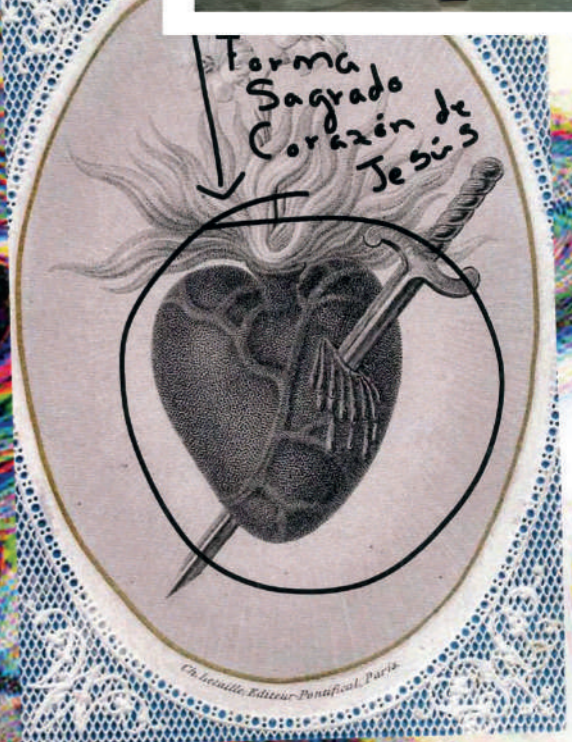 Forma
Sagrado
Corazón de
Jesús
Ch. Letaille, Editeur Pontifical, Paris.